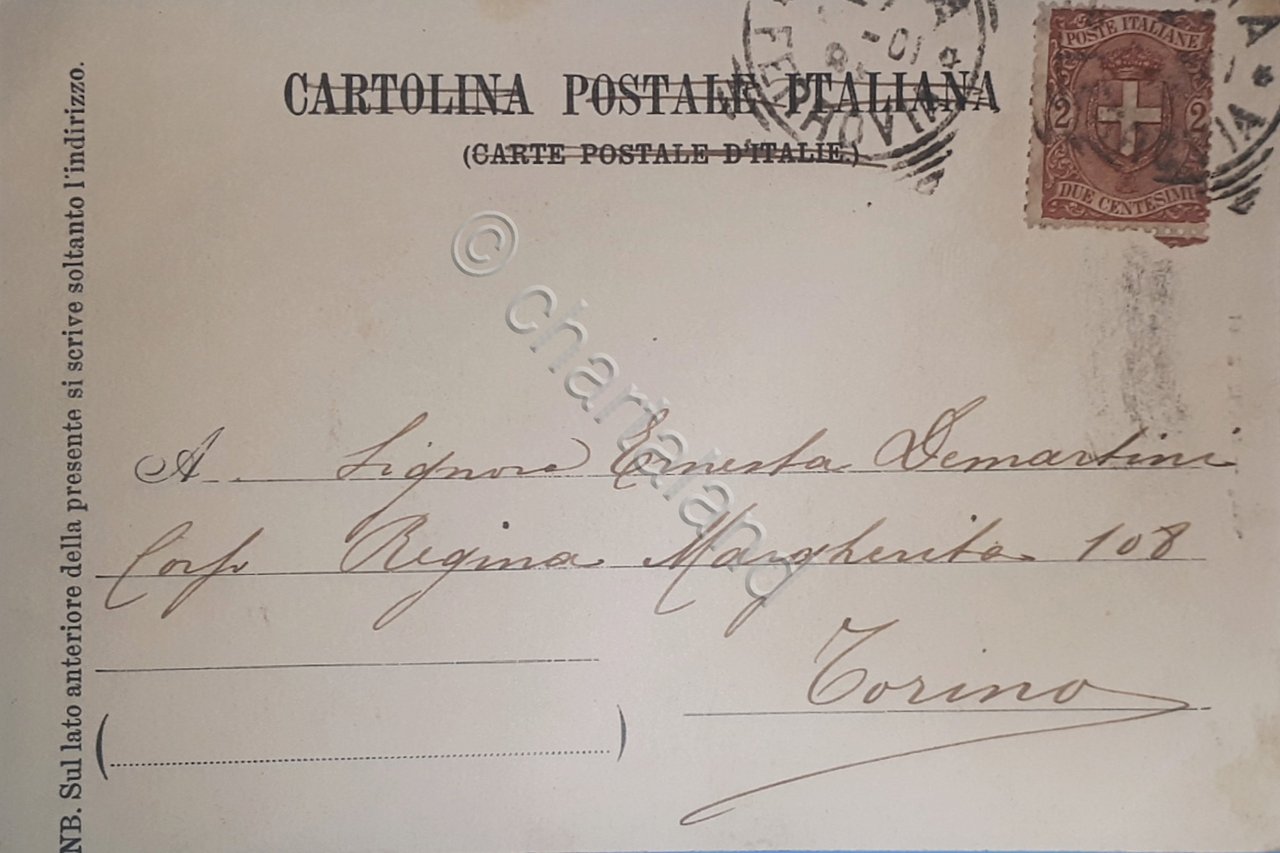 CARTOLINA POSTALE ITALIANA
(CARTE POSTALE D'ITALIE.)
POSTE ITALIANE
2 2
DUE CENTESIMI
FERROVIA
NB. Sul lato anteriore della presente si scrive soltanto l'indirizzo.
© chartaland
A Signora Ernesta Demartini
Corso Regina Margherita 108
Torino